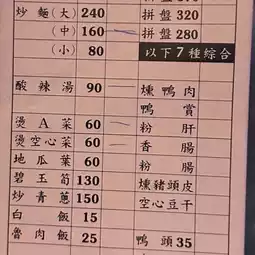 拼盤 320
炒麵(大) 240
(中) 160
拼盤 280
(小) 80
以下7種綜合
酸辣湯 90
燻鴨肉
鴨賞
燙A菜 60
粉肝
燙空心菜 60
香腸
地瓜葉 60
粉腸
碧玉筍 130
燻豬頭皮
炒青蔥 150
空心豆干
白飯 15
魯肉飯 25
鴨頭 35